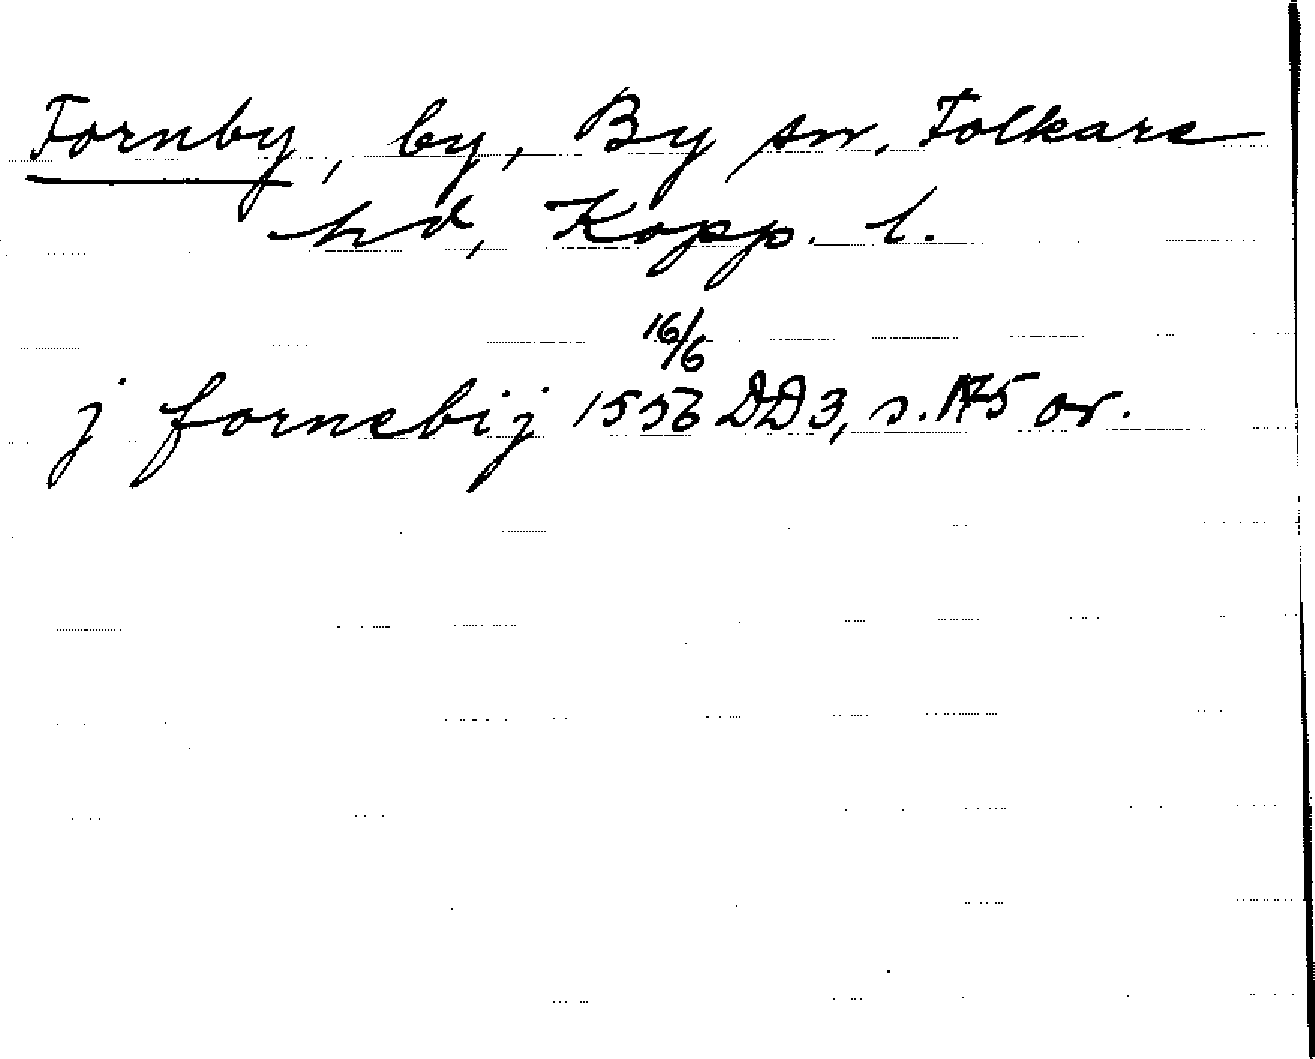 Fornby, by, By sn, Folkare
hd, Kopp. l.
16/6
j fornebij 1556 DD3, s. 175 or.